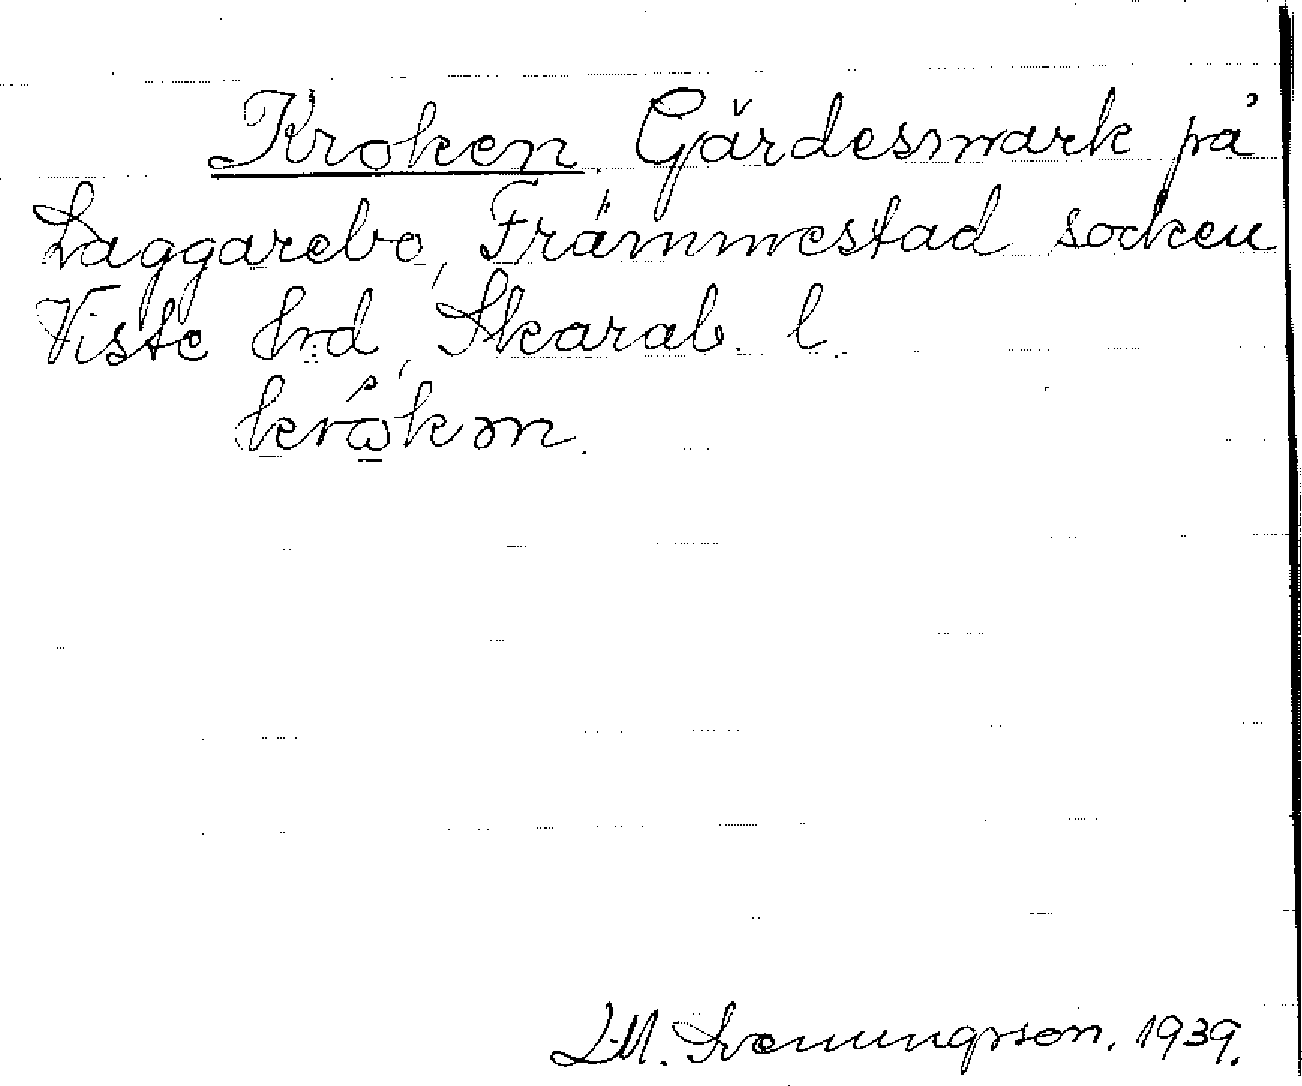 Kroken Gärdesmark på
Laggarebo, Främmestad socken
Viste hrd, Skarab. l.
krό̣kən.
L.M. Svenungsson. 1939.